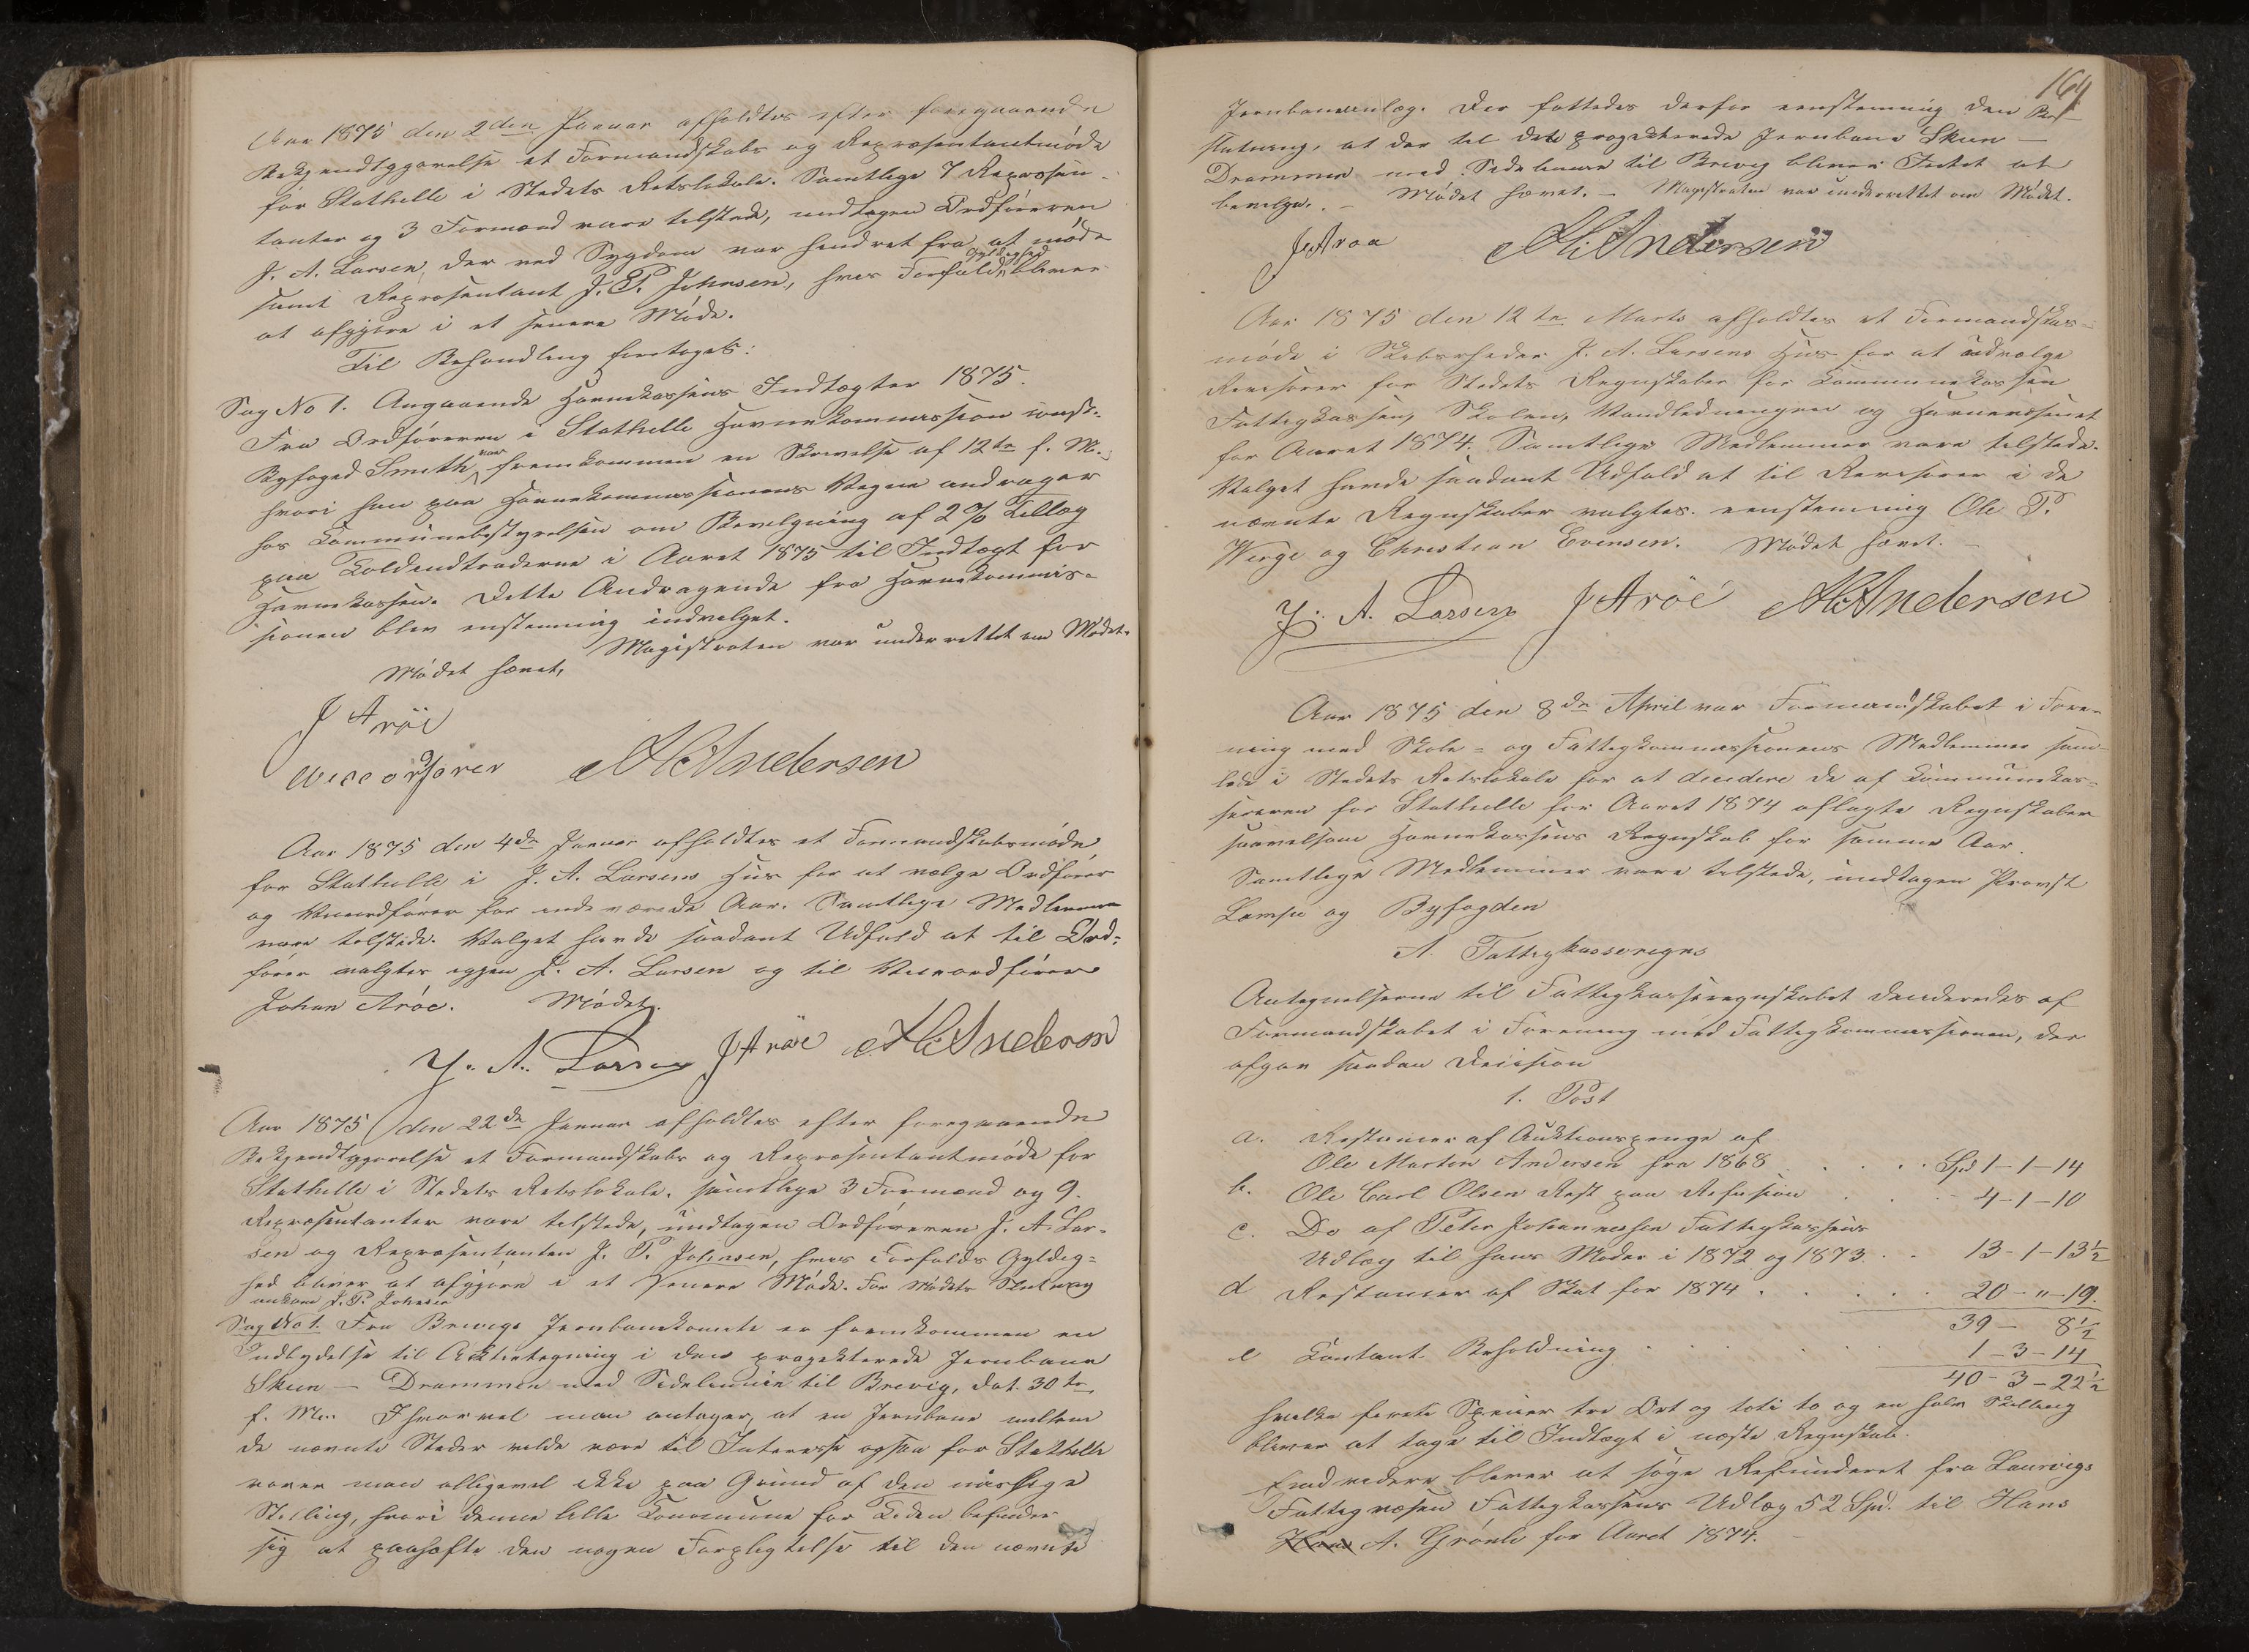 Aar 1875 den 2den Januar afholdtes efter foregaaende
Bekjendtgjørelse et Formandskabs og Repræsentantmøde
for Stathelle i Stedets Retslokale. Samtlige 7 Repræsen-
tanter og 3 Formænd vare tilstede, undtagen Ordføreren
J. A. Larsen, der ved Sygdom var hindret fra at møde
samt Repræsentant J. P. Johnsen, hvis Forfalds Gyldighed bliver
at afgjøre i et senere Møde.
Til Behandling foretoges:
Sag No 1. Angaaende Havnekassens Indtægter 1875.
Fra Ordføreren i Stathelle Havnekommission const.
Byfoged Smith var fremkommen en Skrivelse af 12te f. M.
hvori han paa Havnekommissionens Vegne andrager
hos Kommunebestyrelsen om Bevilgning af 2 % Tillæg
paa Toldindtraderne i Aaret 1875 til Indtægt for
Havnekassen. Dette Andragende fra Havnekommis-
sionen blev enstemmig indvilget.
Mødet hævet, Magistraten var underrettet om Mødet.
J Arøe
viceordfører A H Andersen
Aar 1875 den 4de Januar afholdtes et Formandskabsmøde
for Stathelle i J. A. Larsens Hus for at vælge Ordfører
og Viceordfører for indeværende Aar. Samtlige Medlemmer
vare tilstede. Valget havde saadant Udfald at til Ord-
fører valgtes igjen J. A. Larsen og til Viceordfører
Johan Arøe. Mødet
J. A. Larsen J Arøe A H Andersen
Aar 1875 den 22de Januar afholdtes efter foregaaende
Bekjendtgjørelse et Formandskabs og Repræsentantmøde for
Stathelle i Stedets Retslokale. samtlige 3 Formænd og 9.
Repræsentanter vare tilstede, undtagen Ordføreren J. A. Lar-
sen og Repræsentanten J. P. Johnsen, hvis Forfalds Gyldig-
hed bliver at afgjøre i et senere Møde. Før Mødets Slutning
ankom J. P. Johnsen
Sag No 1. Fra Brevigs Jernbanekomite er fremkommen en
Indbydelse til Aktietegning i den projekterede Jernbane
Skien - Drammen med Sidelinie til Brevig, dat. 30te
f. M. Ihvorvel man antager, at en Jernbane mellem
de nævnte Steder vilde være til Interesse ogsaa for Stathelle
vover man alligevel ikke paa Grund af den mislige
Stilling, hvori denne lille Kommune for Tiden befinder
sig at paahefte den nogen Forpligtelse til den nævnte
164
Jernbaneanlæg. Der fattedes derfor eenstemmig den Be-
slutning, at der til den projekterede Jernbane Skien -
Drammen med Sidelinie til Brevig bliver Intet at
bevilge. - Mødet hævet. - Magistraten var underrettet om Mødet.
J Arøe A H Andersen
Aar 1875 den 12te Marts afholdtes et Formandskabs-
møde i Skibsrheder J. A. Larsens Hus for at udvælge
Revisorer for Stedets Regnskaber for Kommunekassen
Fattigkassen, Skolen, Vandledningen og Havnevæsenet
for Aaret 1874. Samtlige Medlemmer vare tilstede.
Valget havde saadant Udfald at til Revisorer i de
nævnte Regnskaber valgtes eenstemmig Ole P.
Werge og Christian Evensen. Mødet hævet. -
J. A. Larsen J Arøe A H Andersen
Aar 1875 den 8de April var Formandskabet i Fore-
ning med Skole- og Fattigkommissionens Medlemmer sam-
lede i Stedets Retslokale for at decidere de af Kommunekas-
sereren for Stathelle for Aaret 1874 aflagte Regnskaber
saavelsom Havnekassens Regnskab for samme Aar.
Samtlige Medlemmer vare tilstede, undtagen Provst
og Byfogden
A. Fattigkasseregns
Antegnelserne til Fattigkasseregnskabet decideredes af
Formandskabet i Forening med Fattigkommissionen, der
afgav saadan Decision
1. Post
a. Restancer af Auktionspenge af
Ole Marten Andersen fra 1868 . . . . Spd 1-1-14
b. Ole Carl Olsen Rest paa Refusion . . . 4-1-10
c. Do af Peter Johannessen Fattigkassens
Udlæg til hans Moder i 1872 og 1873 . . 13-1-13½
d Restancer af Skat for 1874 . . . . . 20-"-19.
39 - 8½
e Contant Beholdning . . . . . . 1-3-14
40-3-22½
hvilke firti Specier tre Ort og toti to og en halv Skilling
bliver at tage til Indtægt i næste Regnskab.
Endvidere bliver at søge Refunderet fra Laurvigs
Fattigvæsen Fattigkassens Udlæg 52 Spd. til Hans
A. Grønli for Aaret 1874.